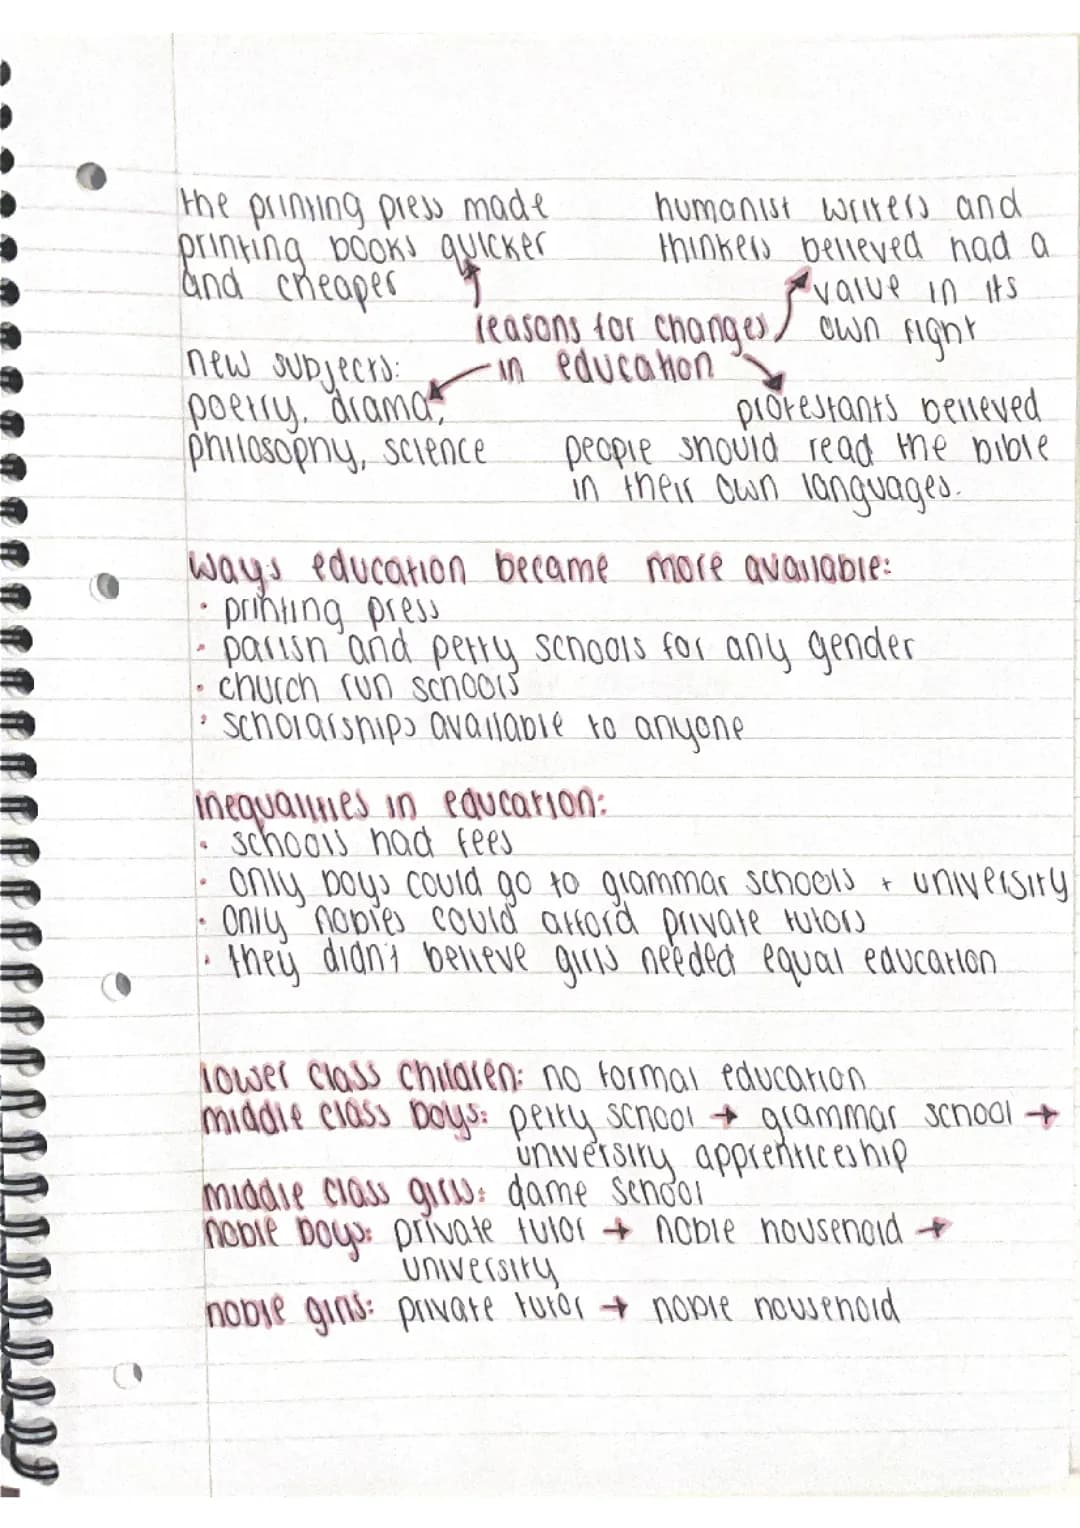 the printing press made
printing books quicker
and cheaper
humanist writers and
thinkers believed had a
value in its
own right
reasons for changes
in education
new subjects:
poetry, drama,
philosophy, science
protestants believed
people should read the bible
in their own languages.
ways education became more available:
• printing press
• parish and petty schools for any gender
• church run schools
• scholarships available to anyone
inequalities in education:
• schools had fees
• only boys could go to grammar schools + university
• only nobles could afford private tutors
• they didn't believe girls needed equal education
lower class children: no formal education
middle class boys: petty school → grammar school →
university apprenticeship
middle class girls: dame school
noble boys: private tutor → noble household →
university
noble girls: private tutor → noble household